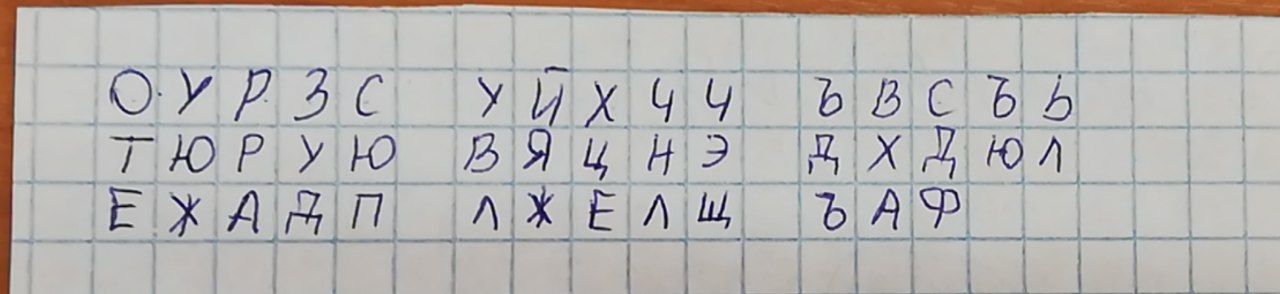 ОУРЗС УЙХЧЧ ЪВСЪЬ
ТЮРУЮ ВЯЦНЭ ДХДЮЛ
ЕЖАДП ЛЖЕЛЩ ЪАФ